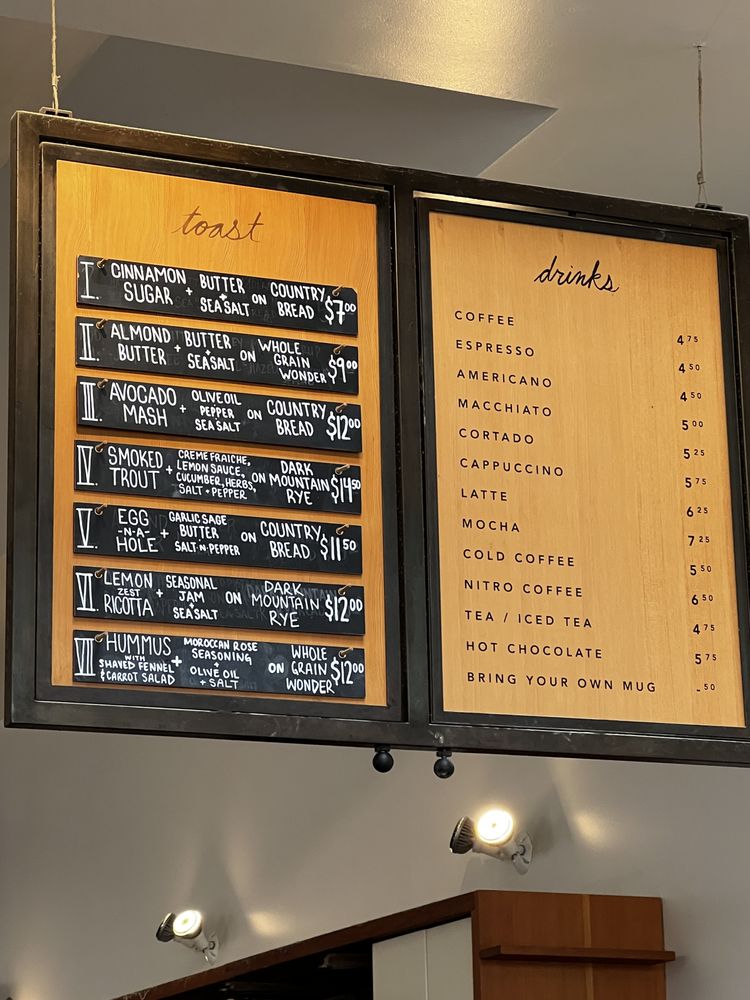 toast
I. CINNAMON SUGAR + BUTTER + SEA SALT ON COUNTRY BREAD $7⁰⁰
II. ALMOND BUTTER + BUTTER + SEA SALT ON WHOLE GRAIN WONDER $9⁰⁰
III. AVOCADO MASH + OLIVE OIL PEPPER SEA SALT ON COUNTRY BREAD $12⁰⁰
IV. SMOKED TROUT + CREME FRAICHE, LEMON SAUCE, CUCUMBER, HERBS, SALT + PEPPER ON DARK MOUNTAIN RYE $14⁵⁰
V. EGG -N-A- HOLE + GARLIC SAGE BUTTER SALT-N-PEPPER ON COUNTRY BREAD $11⁵⁰
VI. LEMON ZEST RICOTTA + SEASONAL JAM + SEA SALT ON DARK MOUNTAIN RYE $12⁰⁰
VII. HUMMUS WITH SHAVED FENNEL & CARROT SALAD + MOROCCAN ROSE SEASONING + OLIVE OIL + SALT ON WHOLE GRAIN WONDER $12⁰⁰
drinks
COFFEE 4⁷⁵
ESPRESSO 4⁵⁰
AMERICANO 4⁵⁰
MACCHIATO 5⁰⁰
CORTADO 5²⁵
CAPPUCCINO 5⁷⁵
LATTE 6²⁵
MOCHA 7²⁵
COLD COFFEE 5⁵⁰
NITRO COFFEE 6⁵⁰
TEA / ICED TEA 4⁷⁵
HOT CHOCOLATE 5⁷⁵
BRING YOUR OWN MUG -⁵⁰